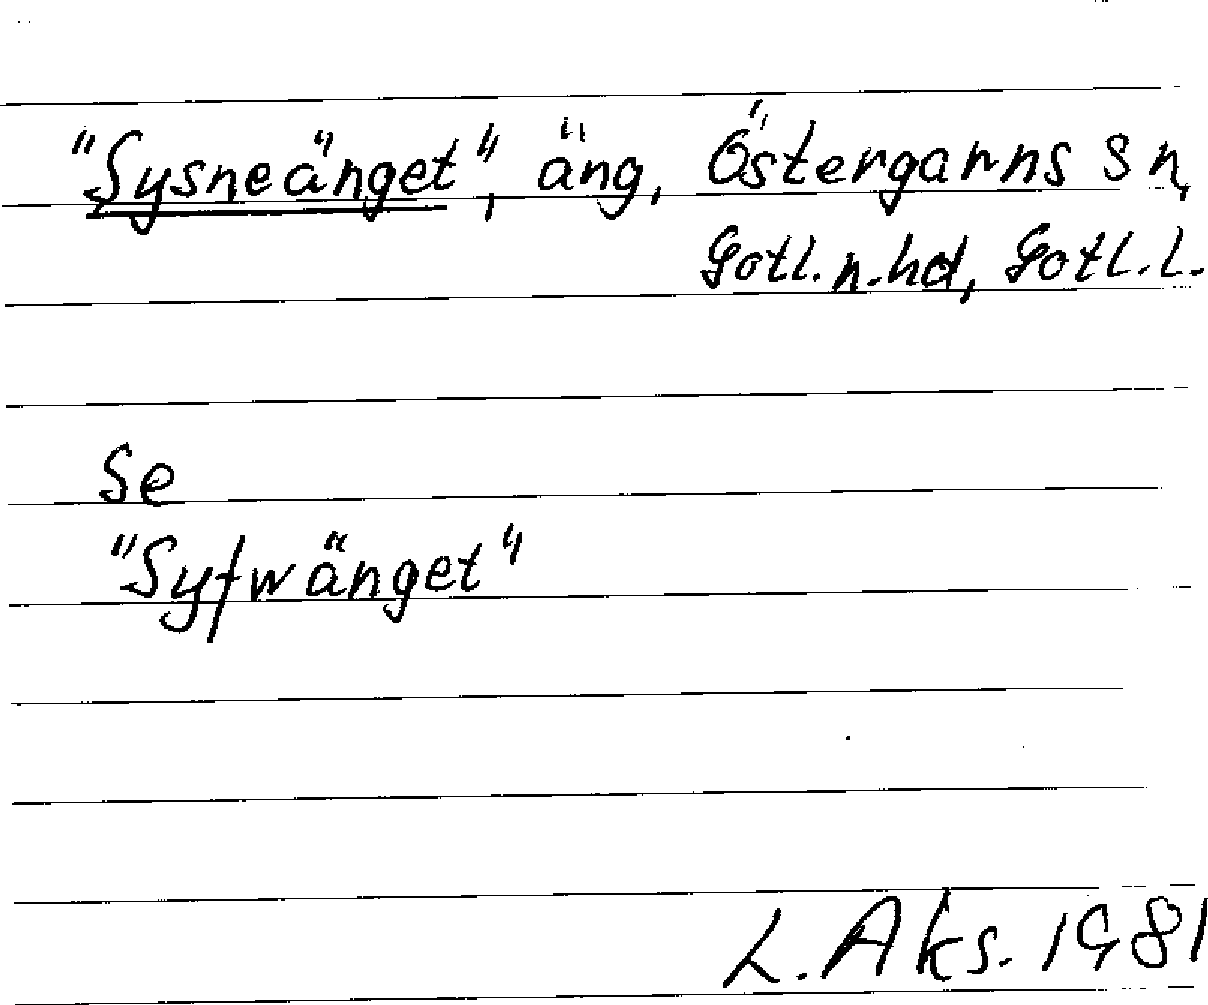 "Sysneänget", äng, Östergarns sn,
Gotl. n. hd, Gotl. l.
Se
"Syfwänget"
L. Aks. 1981